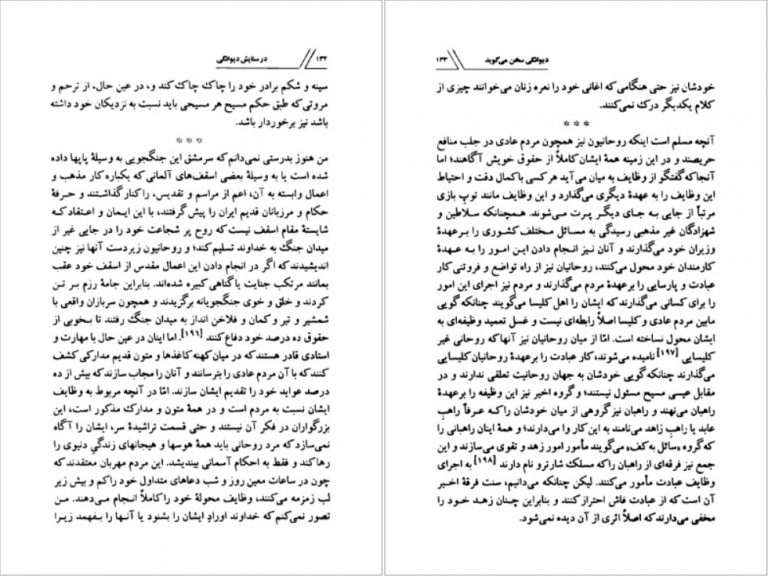 ۱۳۲ در ستایش دیوانگی
سینه و شکم برادر خود را چاک چاک کند و، در عین حال، از ترحم و
مروتی که طبق حکم مسیح هر مسیحی باید نسبت به نزدیکان خود داشته
باشد نیز برخوردار باشد.
* * *
من هنوز بدرستی نمی‌دانم که سرمشق این جنگجویی به وسیلهٔ پاپها داده
شده است یا به وسیلهٔ بعضی اسقف‌های آلمانی که یکباره کار مذهب و
اعمال وابسته به آن، اعم از مراسم و تقدیس، را کنار گذاشتند و حرفهٔ
حکام و مرزبانان قدیم ایران را پیش گرفتند، با این ایمان و اعتقاد که
شایستهٔ مقام اسقف نیست که روح پر شجاعت خود را در جایی غیر از
میدان جنگ به خداوند تسلیم کند؛ و روحانیون زیردست آنها نیز چنین
اندیشیدند که اگر در انجام دادن این اعمال مقدس از اسقف خود عقب
بمانند مرتکب جنایت یا گناهی کبیره شده‌اند. بنابراین جامهٔ رزم بر تن
کردند و خلق و خوی جنگجویانه برگزیدند و همچون سربازان واقعی با
شمشیر و تیر و کمان و فلاخن انداز به میدان جنگ رفتند تا بخوبی از
حقوق ده درصد خود دفاع کنند [۱۹۶]. اما اینان در عین حال با مهارت و
استادی قادر هستند که در میان کهنه کاغذها و متون قدیم مدارکی کشف
کنند که با آن مردم عادی را بترسانند و آنان را مجاب سازند که بیش از ده
درصد عواید خود را تقدیم ایشان سازند. امّا در آنچه مربوط به وظایف
ایشان نسبت به مردم است و در همهٔ متون و مدارک مذکور است، این
بزرگواران در فکر آن نیستند و حتی قسمت تراشیدهٔ سر، ایشان را آگاه
نمی‌سازد که مرد روحانی باید همهٔ هوسها و هیجانهای زندگی دنیوی را
رها کند و فقط به احکام آسمانی بیندیشد. این مردم مهربان معتقدند که
چون در ساعات معین روز و شب دعاهای متداول خود را کم و بیش زیر
لب زمزمه می‌کنند، وظایف محولهٔ خود را کاملاً انجام می‌دهند. من
تصور نمی‌کنم که خداوند اوراد ایشان را بشنود یا آنها را بفهمد زیرا
دیوانگی سخن می‌گوید ۱۳۳
خودشان نیز حتی هنگامی که اغانی خود را نعره زنان می‌خوانند چیزی از
کلام یکدیگر درک نمی‌کنند.
* * *
آنچه مسلم است اینکه روحانیون نیز همچون مردم عادی در جلب منافع
حریصند و در این زمینه همهٔ ایشان کاملاً از حقوق خویش آگاهند؛ اما
آنجا که گفتگو از وظایف به میان می‌آید هر کسی با کمال دقت و احتیاط
این وظایف را به عهدهٔ دیگری می‌گذارد و این وظایف مانند توپ بازی
مرتباً از جایی به جای دیگر پرت می‌شوند. همچنانکه سلاطین و
شهزادگان غیر مذهبی رسیدگی به مسائل مختلف کشوری را برعهدهٔ
وزیران خود می‌گذارند و آنان نیز انجام دادن این امور را به عهدهٔ
کارمندان خود محول می‌کنند، روحانیان نیز از راه تواضع و فروتنی کار
عبادت و پارسایی را برعهدهٔ مردم می‌گذارند و مردم نیز اجرای این امور
را برای کسانی می‌گذارند که ایشان را اهل کلیسا می‌گویند چنانکه گویی
مابین مردم عادی و کلیسا اصلاً رابطه‌ای نیست و غسل تعمید وظیفه‌ای به
ایشان محول نساخته است. امّا از میان روحانیان نیز آنها که روحانی غیر
کلیسایی [۱۹۷] نامیده می‌شوند، کار عبادت را برعهدهٔ روحانیان کلیسایی
می‌گذارند چنانکه گویی خودشان به جهان روحانیت تعلقی ندارند و در
مقابل عیسی مسیح مسئول نیستند؛ و گروه اخیر نیز این وظیفه را برعهدهٔ
راهبان می‌نهند و راهبان نیز گروهی از میان خودشان را که عرفاً راهب
عابد یا راهب زاهد می‌نامند به این کار وا می‌دارند؛ و همهٔ اینان راهبانی را
که گروه «سائل به کف» می‌گویند مأمور امور زهد و تقوی می‌سازند و این
جمع نیز فرقه‌ای از راهبان را که مسلک شارترو نام دارند [۱۹۸] به اجرای
وظایف عبادت مأمور می‌کنند. لیکن چنانکه می‌دانیم، سنت فرقهٔ اخیر
آن است که از عبادت فاش احتراز کنند و بنابراین چنان زهد خود را
مخفی می‌دارند که اصلاً اثری از آن دیده نمی‌شود.